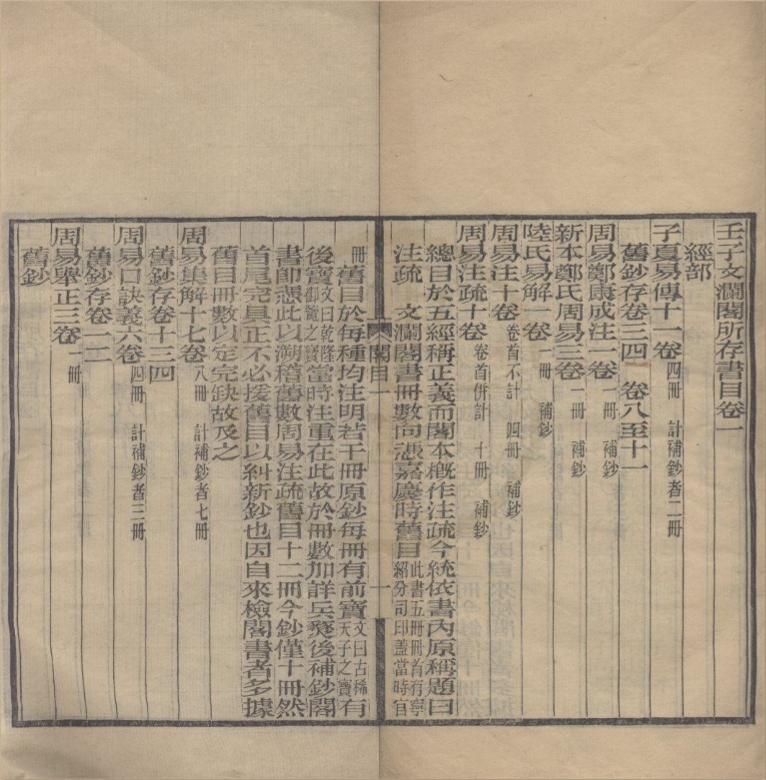 壬子文瀾閣所存書目卷一
經部
子夏易傳十一卷 四冊 計補鈔者二冊
舊鈔存卷三四 卷八至十一
周易鄭康成注一卷 一冊 補鈔
新本鄭氏周易三卷 一冊 補鈔
陸氏易解一卷 一冊 補鈔
周易注十卷 卷首不計 四冊 補鈔
周易注疏十卷 卷首併計 十冊 補鈔
總目於五經稱正義而閣本概作注疏今統依書內原稱題曰
注疏 文瀾閣書冊數向憑嘉慶時舊目 此書五冊冊首有寧紹分司印蓋當時官
閣目一
一
冊 舊目於每種均注明若干冊原鈔每冊有前寶 文曰古稀天子之寶 有
後寶 文曰乾隆御覽之寶 當時注重在此故於冊數加詳兵燹後補鈔閣
書卽憑此以溯稽舊數周易注疏舊目十二冊今鈔僅十冊然
首尾完具正不必援舊目以糾新鈔也因自來檢閣書者多據
舊目冊數以定完缺故及之
周易集解十七卷 八冊 計補鈔者七冊
舊鈔存卷十三四
周易口訣義六卷 四冊 計補鈔者三冊
舊鈔存卷一二
周易舉正三卷 一冊
舊鈔